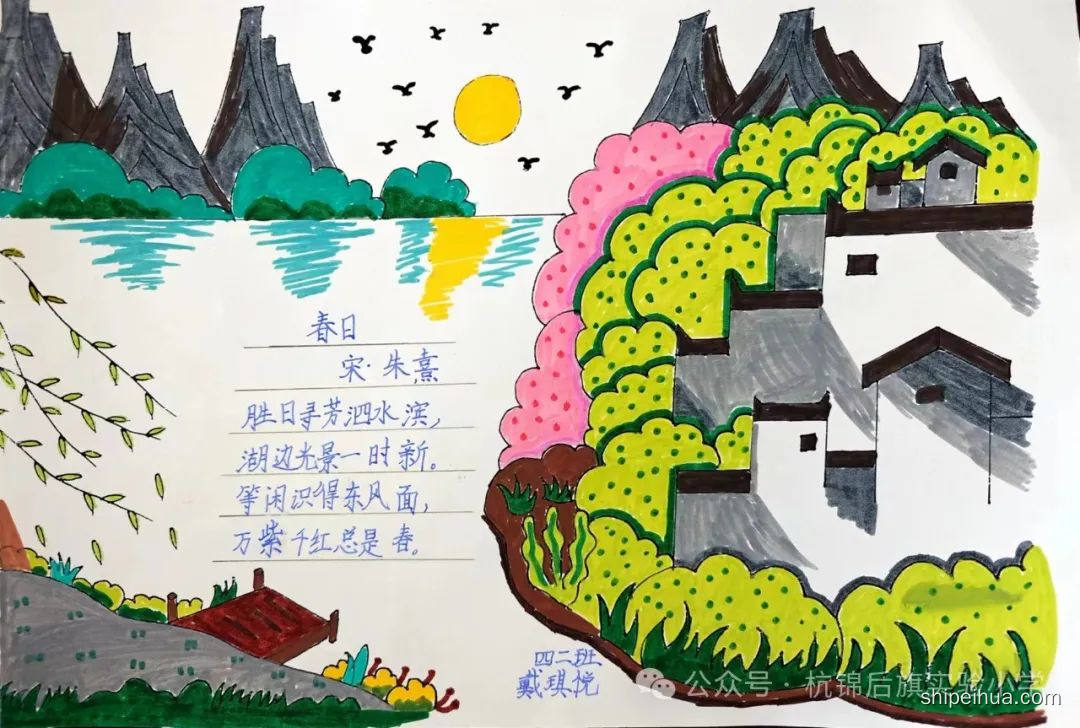 春日
宋·朱熹
胜日寻芳泗水滨，
湖边光景一时新。
等闲识得东风面，
万紫千红总是春。
四二班
戴琪悦
公众号·杭锦后旗实验小学
shipeihua.com